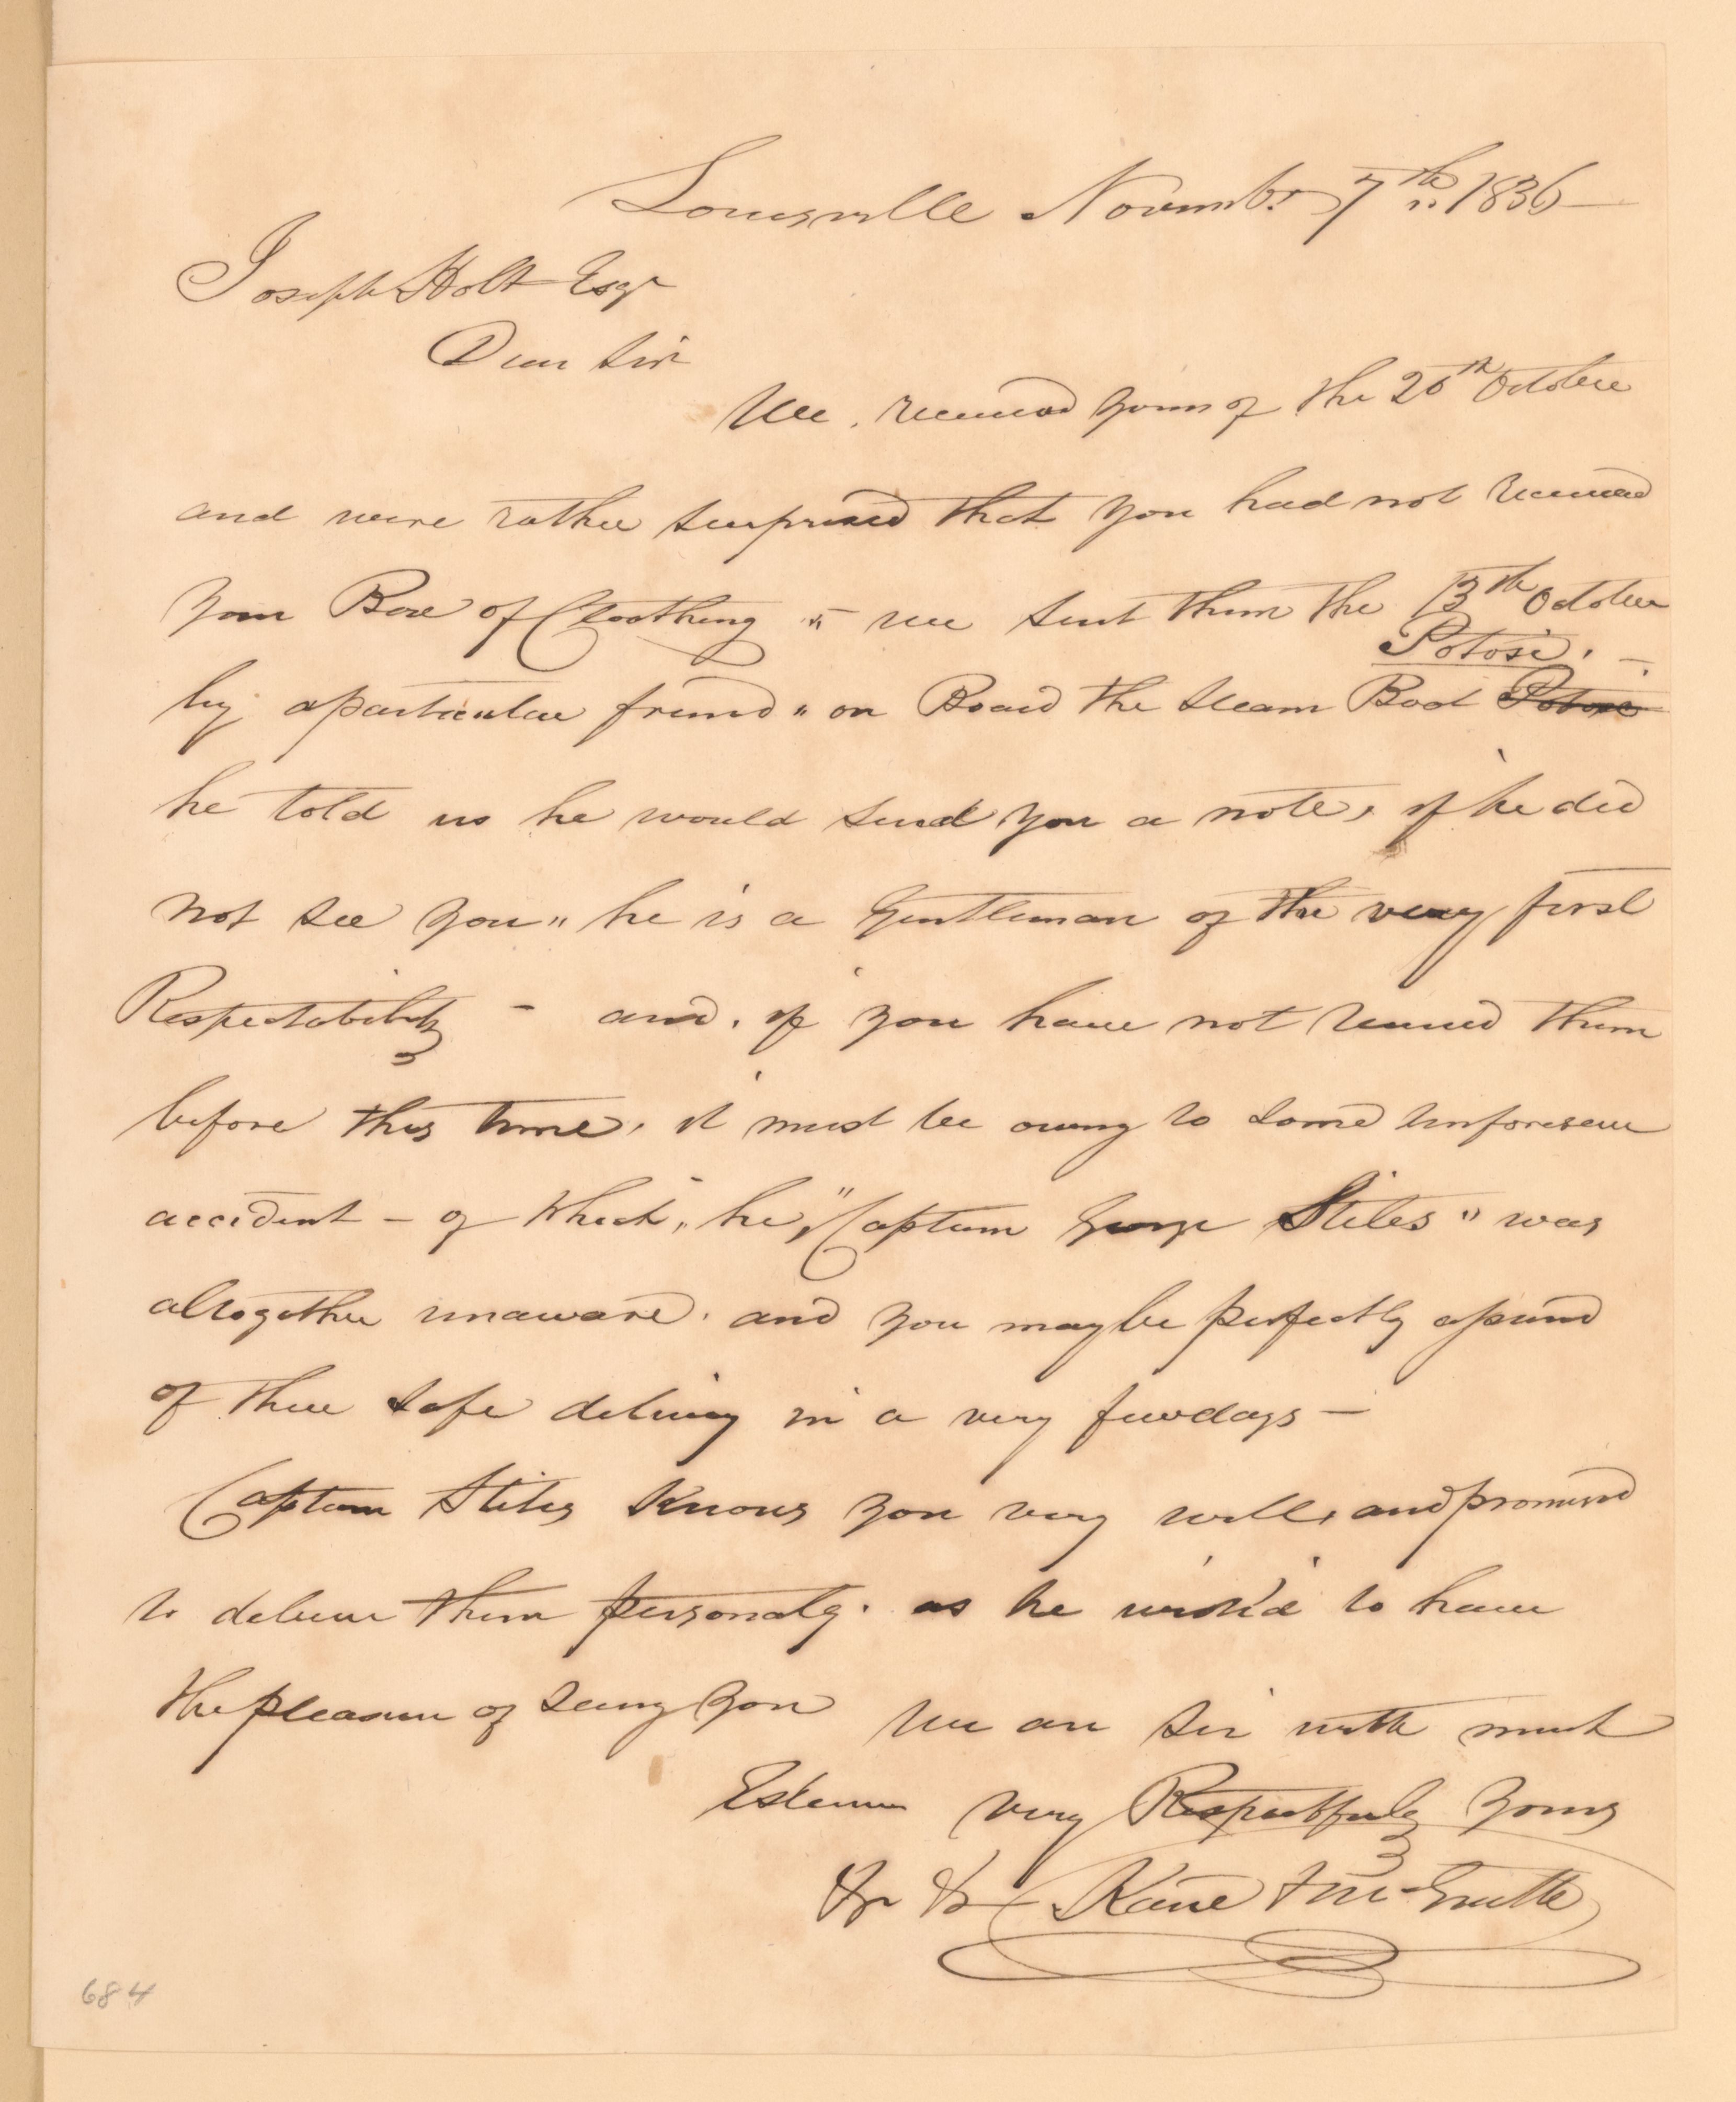 Louisville Novembr 7th 1836
Joseph Holt Esqr
Dear Sir
We. received yours of the 20th October
and were rather surprised that you had not received
your Boxe of Cloothing " we sent them the 13th October
Potosi. -
by aparticular friend " on Board the Steam Boat Potosi
he told us he would send you a note, if he did
not see you " he is a Gentleman of the very first
Respectability - and, if you have not received them
before this time, it must be owing to some unforeseen
accident - of which, he, "Captain George Stiles" was
altogether unaware. and you maybe perfectly assured
of there safe delivery in a very fewdays -
Captain Stiles Knows you very well, and promised
to deliver them personaly. as he wish'd to have
thepleasure of seeing you We are Sir with much
Esteem very Respectfuly yours
Kane &
684